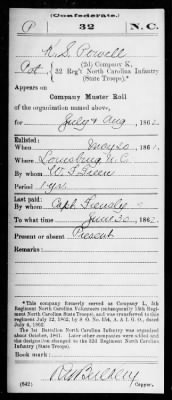 (Confederate.)
P 32 N.C.
Powell
Pvt, (2d) Company K,
32 Reg't North Carolina Infantry
(State Troops).*
Appears on
Company Muster Roll
of the organization named above,
for July & Aug, 1862.
Enlisted:
When May 20, 1861.
Where Louisburg N.C.
By whom W. F. Green
Period 1 yr
Last paid:
By whom Capt.
To what time June 30, 1862.
Present or absent Present
Remarks:
*This company formerly served as Company L, 5th
Regiment North Carolina Volunteers (subsequently 15th Regi-
ment North Carolina State Troops), and was transferred to this
regiment July 12, 1862, by S. O. No. 154, A. & I. G. O., dated
July 4, 1862.
The 1st Battalion North Carolina Infantry was organized
about October, 1861. Later other companies were added and
the designation changed to the 32d Regiment North Carolina
Infantry (State Troops).
Book mark:
(642) Copyist.